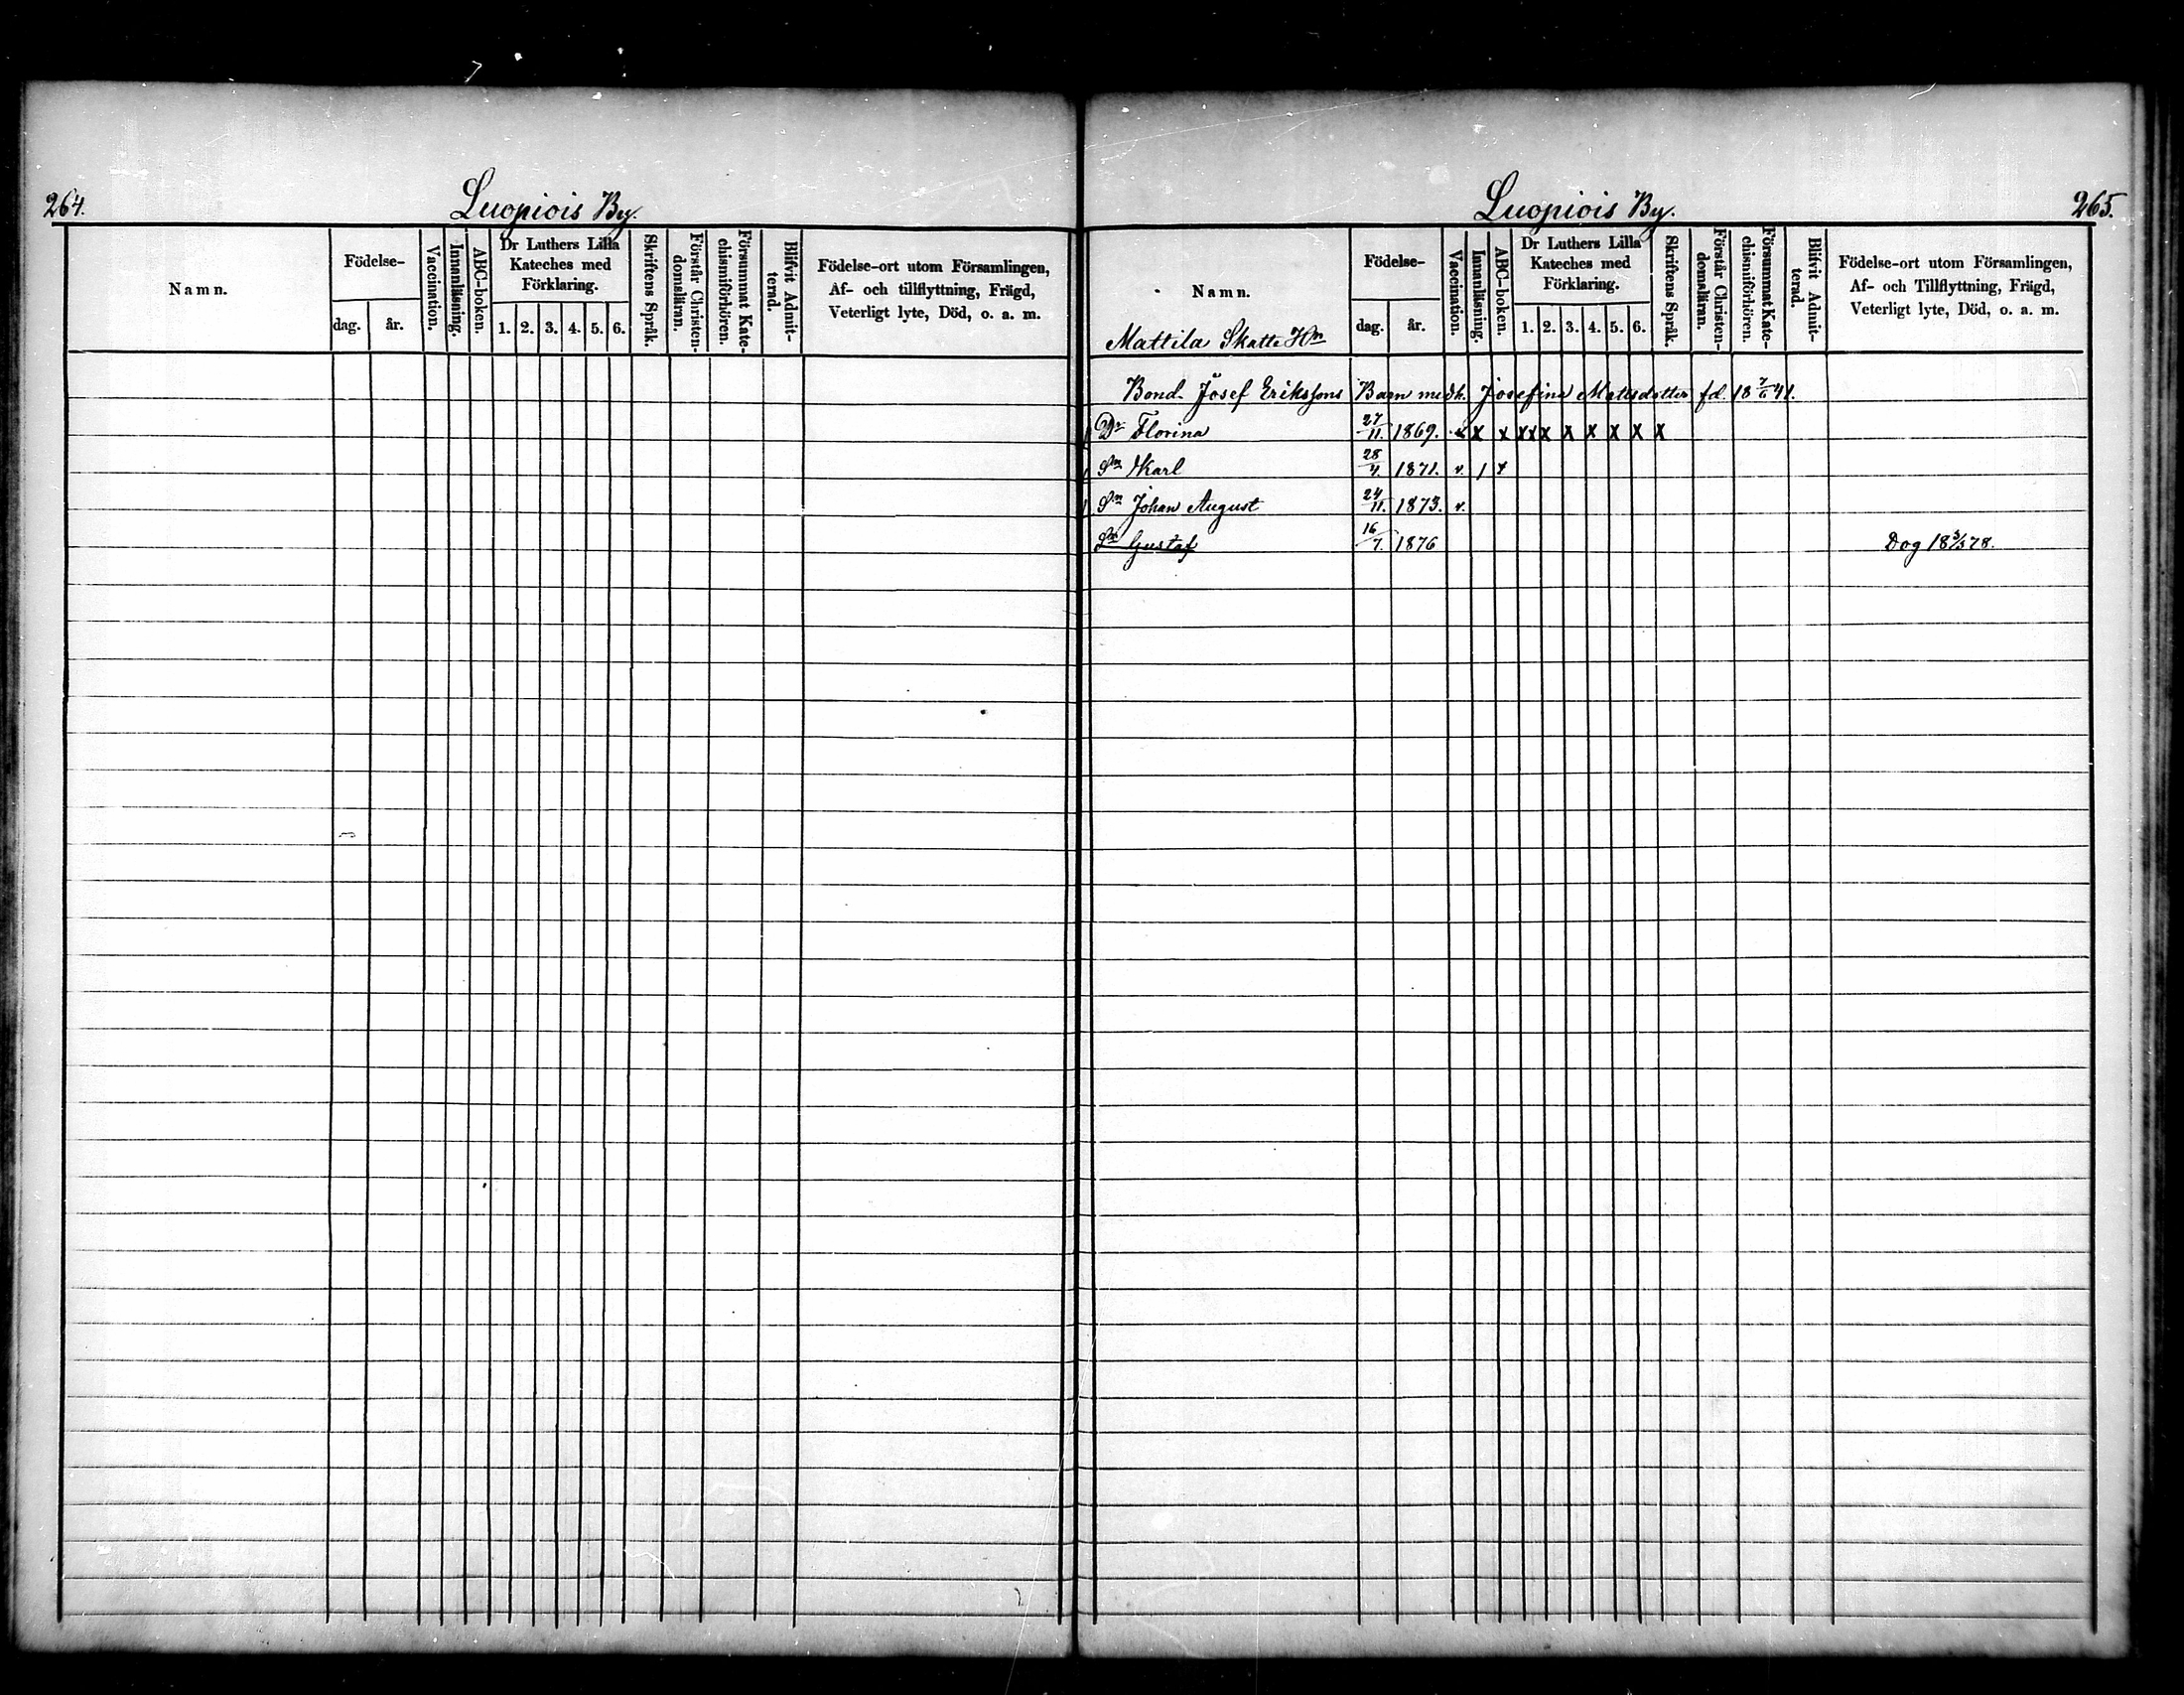 264.
Luopiois By.
Namn.
Födelse-
dag.
år.
Vaccination.
Innanläsning.
ABC-boken.
Dr Luthers Lilla
Kateches med
Förklaring.
1. 2. 3. 4. 5. 6.
Skriftens Språk.
Förstår Christen-
domsläran.
Försummat Kate-
chismiförhören.
Blifvit Admit-
terad.
Födelse-ort utom Församlingen,
Af- och tillflyttning, Frägd,
Veterligt lyte, Död, o. a. m.
Luopiois By.
265.
Namn.
Mattila Skatte Hn
Födelse-
dag.
år.
Vaccination.
Innanläsning.
ABC-boken.
Dr Luthers Lilla
Kateches med
Förklaring.
1. 2. 3. 4. 5. 6.
Skriftens Språk.
Förstår Christen-
domsläran.
Försummat Kate-
chismiförhören.
Blifvit Admit-
terad.
Födelse-ort utom Församlingen,
Af- och Tillflyttning, Frägd,
Veterligt lyte, Död, o. a. m.
Bond. Josef Erikssons Barn medh. Josefina Matsdotter fd. 18 7/6 41.
Dr Florina 27/11. 1869. v x x x x x x x x x x
Sn Karl 28/4. 1871. v. / x
Sn Johan August 24/11. 1873. v.
Sn Gustaf 16/7. 1876 Dog 18 3/3 78.